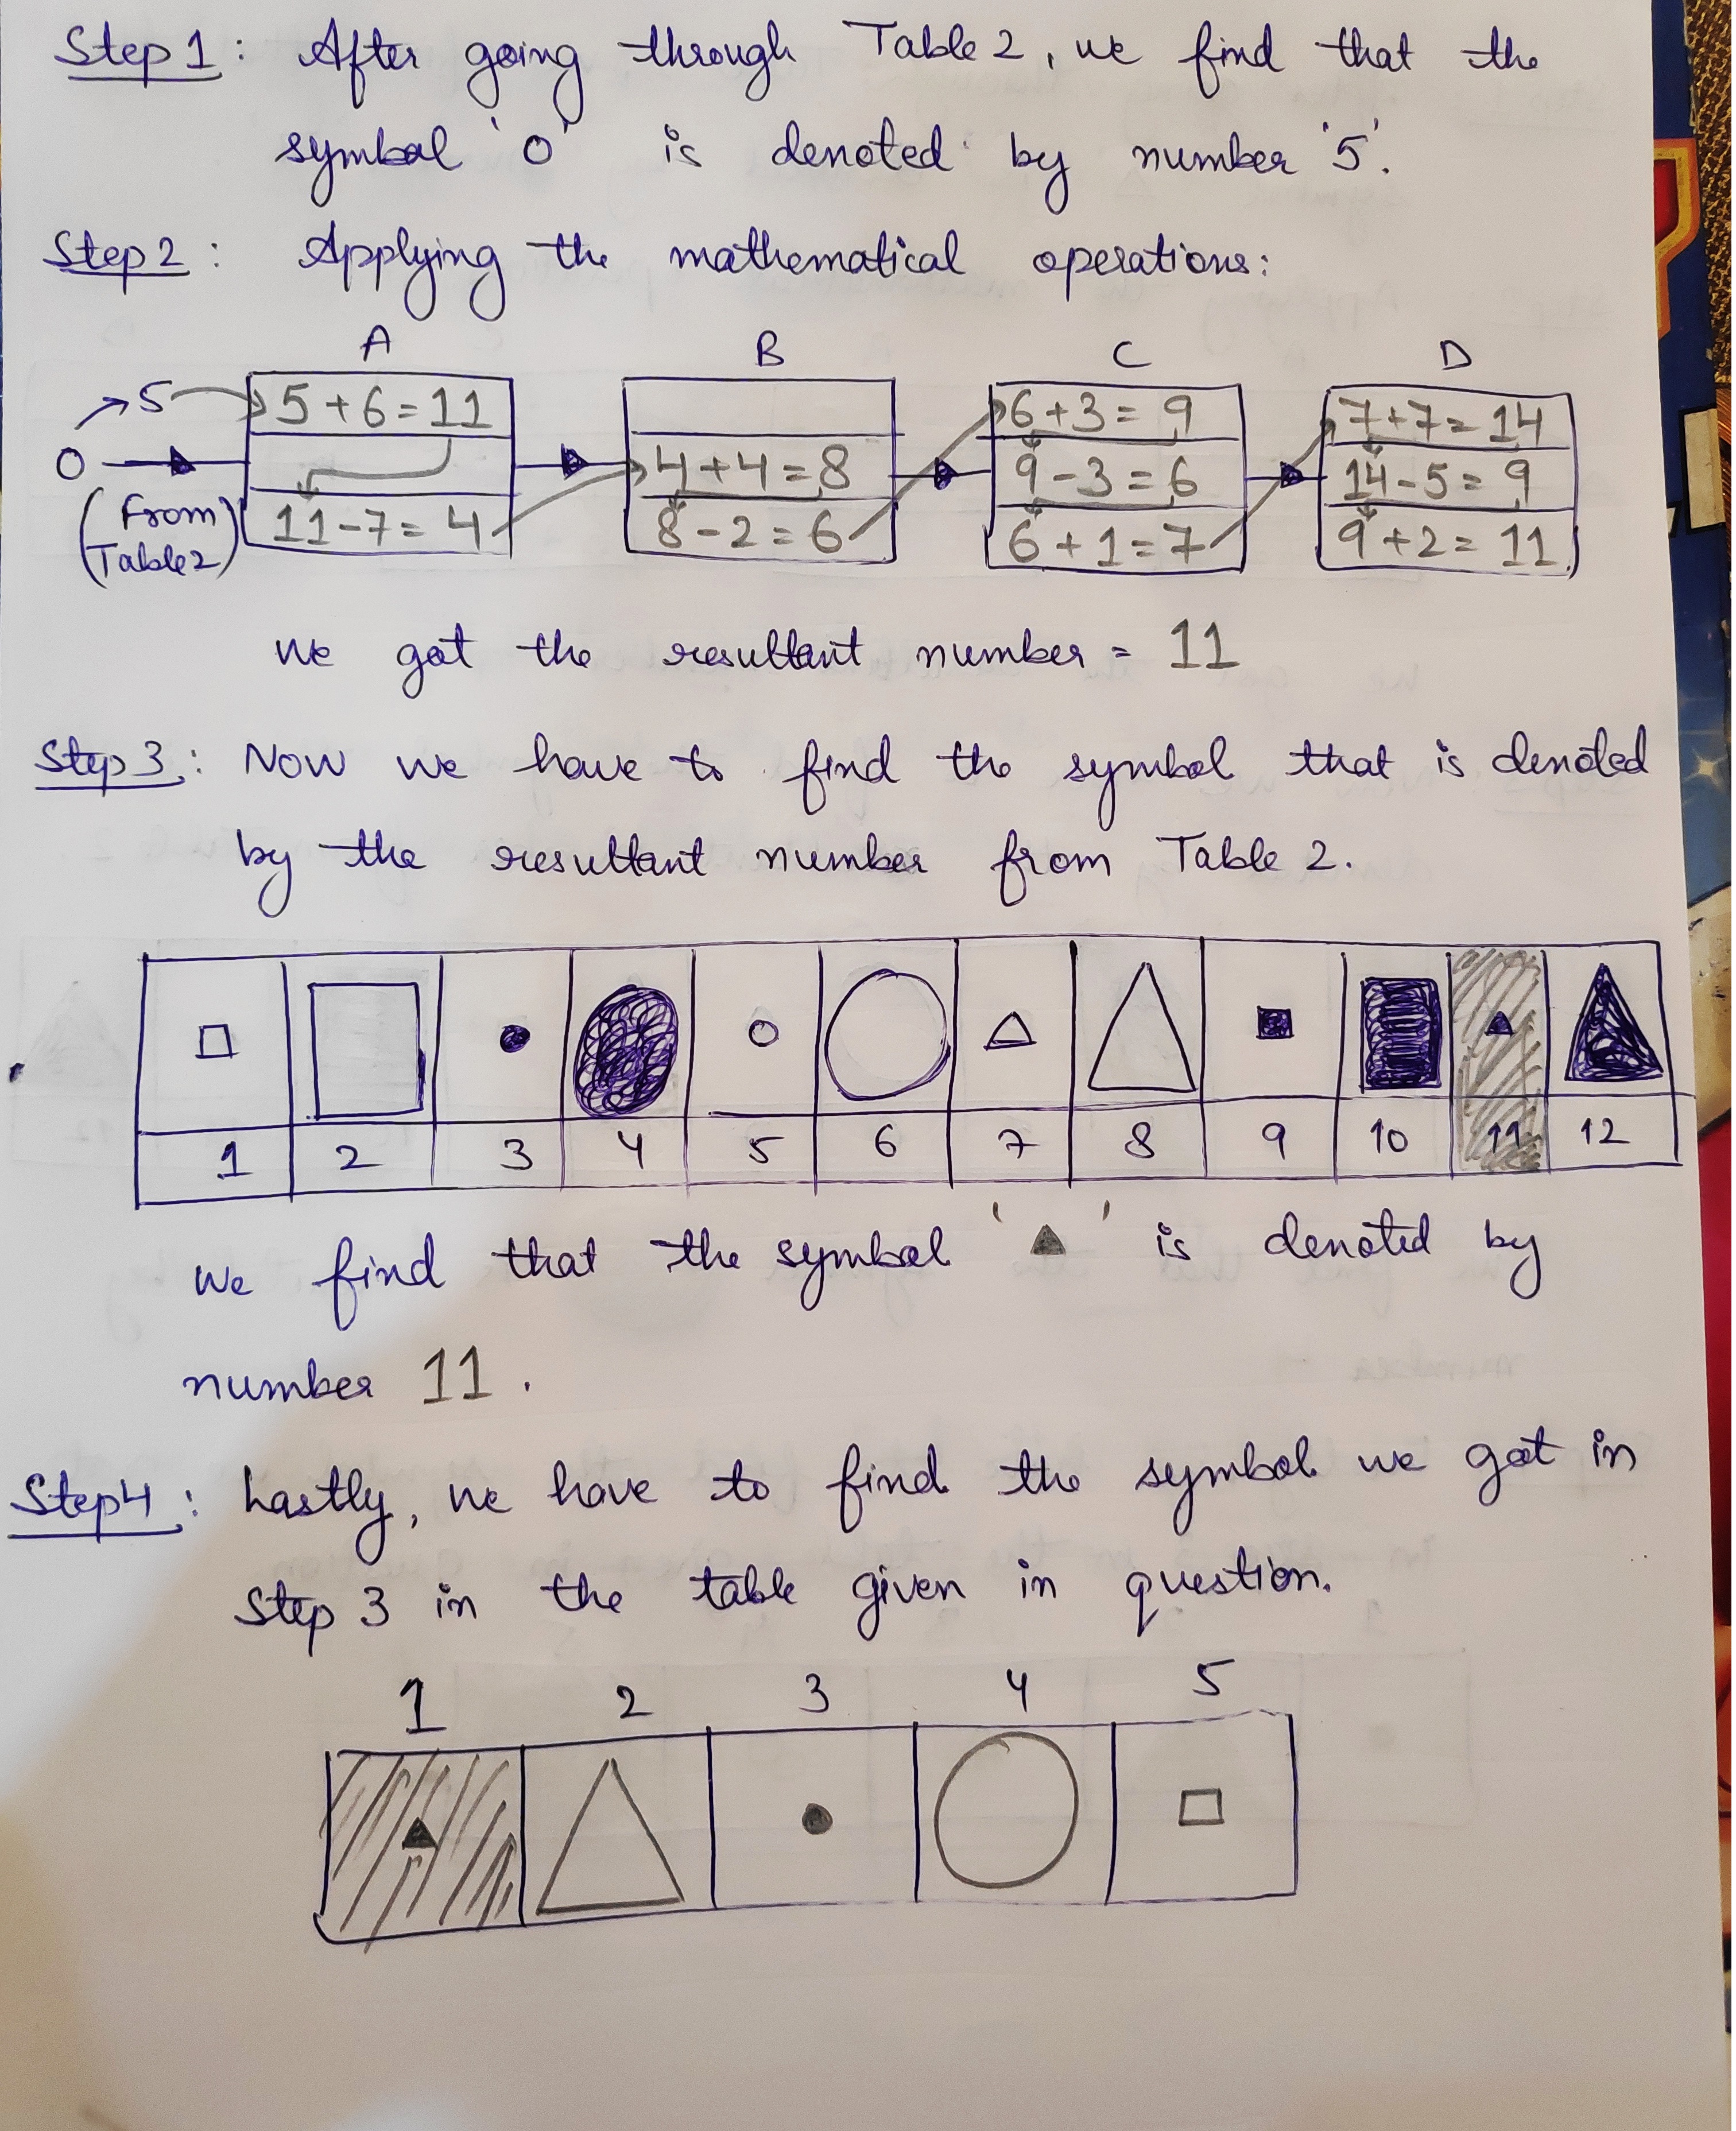 Step 1: After going through Table 2, we find that the
symbol 'O' is denoted by number '5'.
Step 2: Applying the mathematical operations:
A B C D
5 5+6=11 6+3=9 7+7=14
O 4+4=8 9-3=6 14-5=9
(From Table 2) 11-7=4 8-2=6 6+1=7 9+2=11
we got the resultant number = 11
Step 3: Now we have to find the symbol that is denoted
by the resultant number from Table 2.
1 2 3 4 5 6 7 8 9 10 11 12
we find that the symbol '▲' is denoted by
number 11.
Step 4: Lastly, we have to find the symbol we got in
step 3 in the table given in question.
1 2 3 4 5